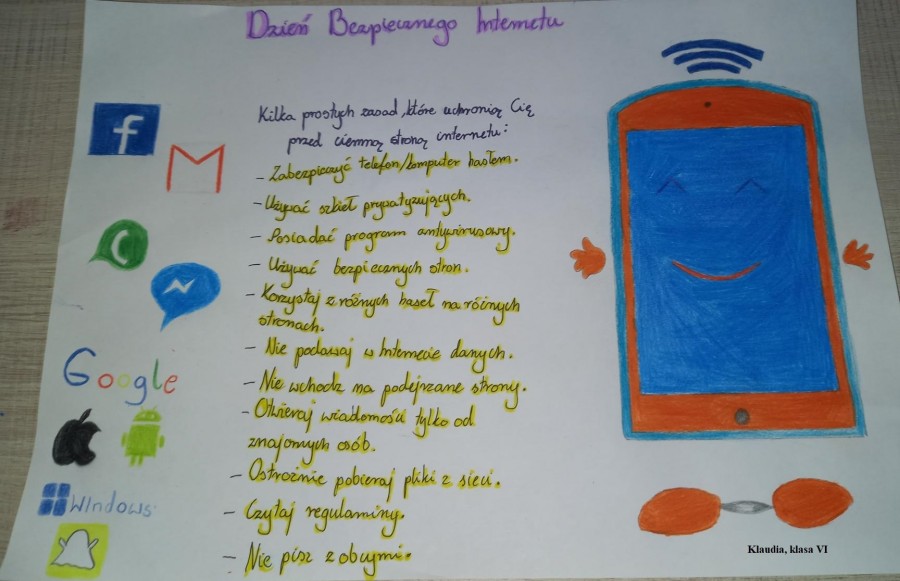 Dzień Bezpiecznego Internetu
Kilka prostych zasad, które uchronią Cię
przed ciemną stroną internetu:
- Zabezpieczyć telefon/komputer hasłem.
- Używać szkieł prywatyzujących.
- Posiadać program antywirusowy.
- Używać bezpiecznych stron.
- Korzystaj z różnych haseł na różnych
stronach.
- Nie podawaj w Internecie danych.
- Nie wchodź na podejrzane strony.
- Otwieraj wiadomości tylko od
znajomych osób.
- Ostrożnie pobieraj pliki z sieci.
- Czytaj regulaminy.
- Nie pisz z obcymi.
f
M
Google
Windows
Klaudia, klasa VI